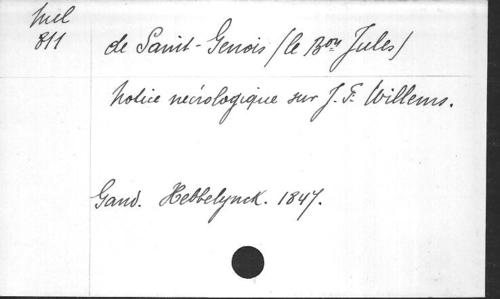 Mel
811
de Saint-Genois (le Bon Jules)
Notice nécrologique sur J. F. Willems.
Gand. Hebbelynck. 1847.